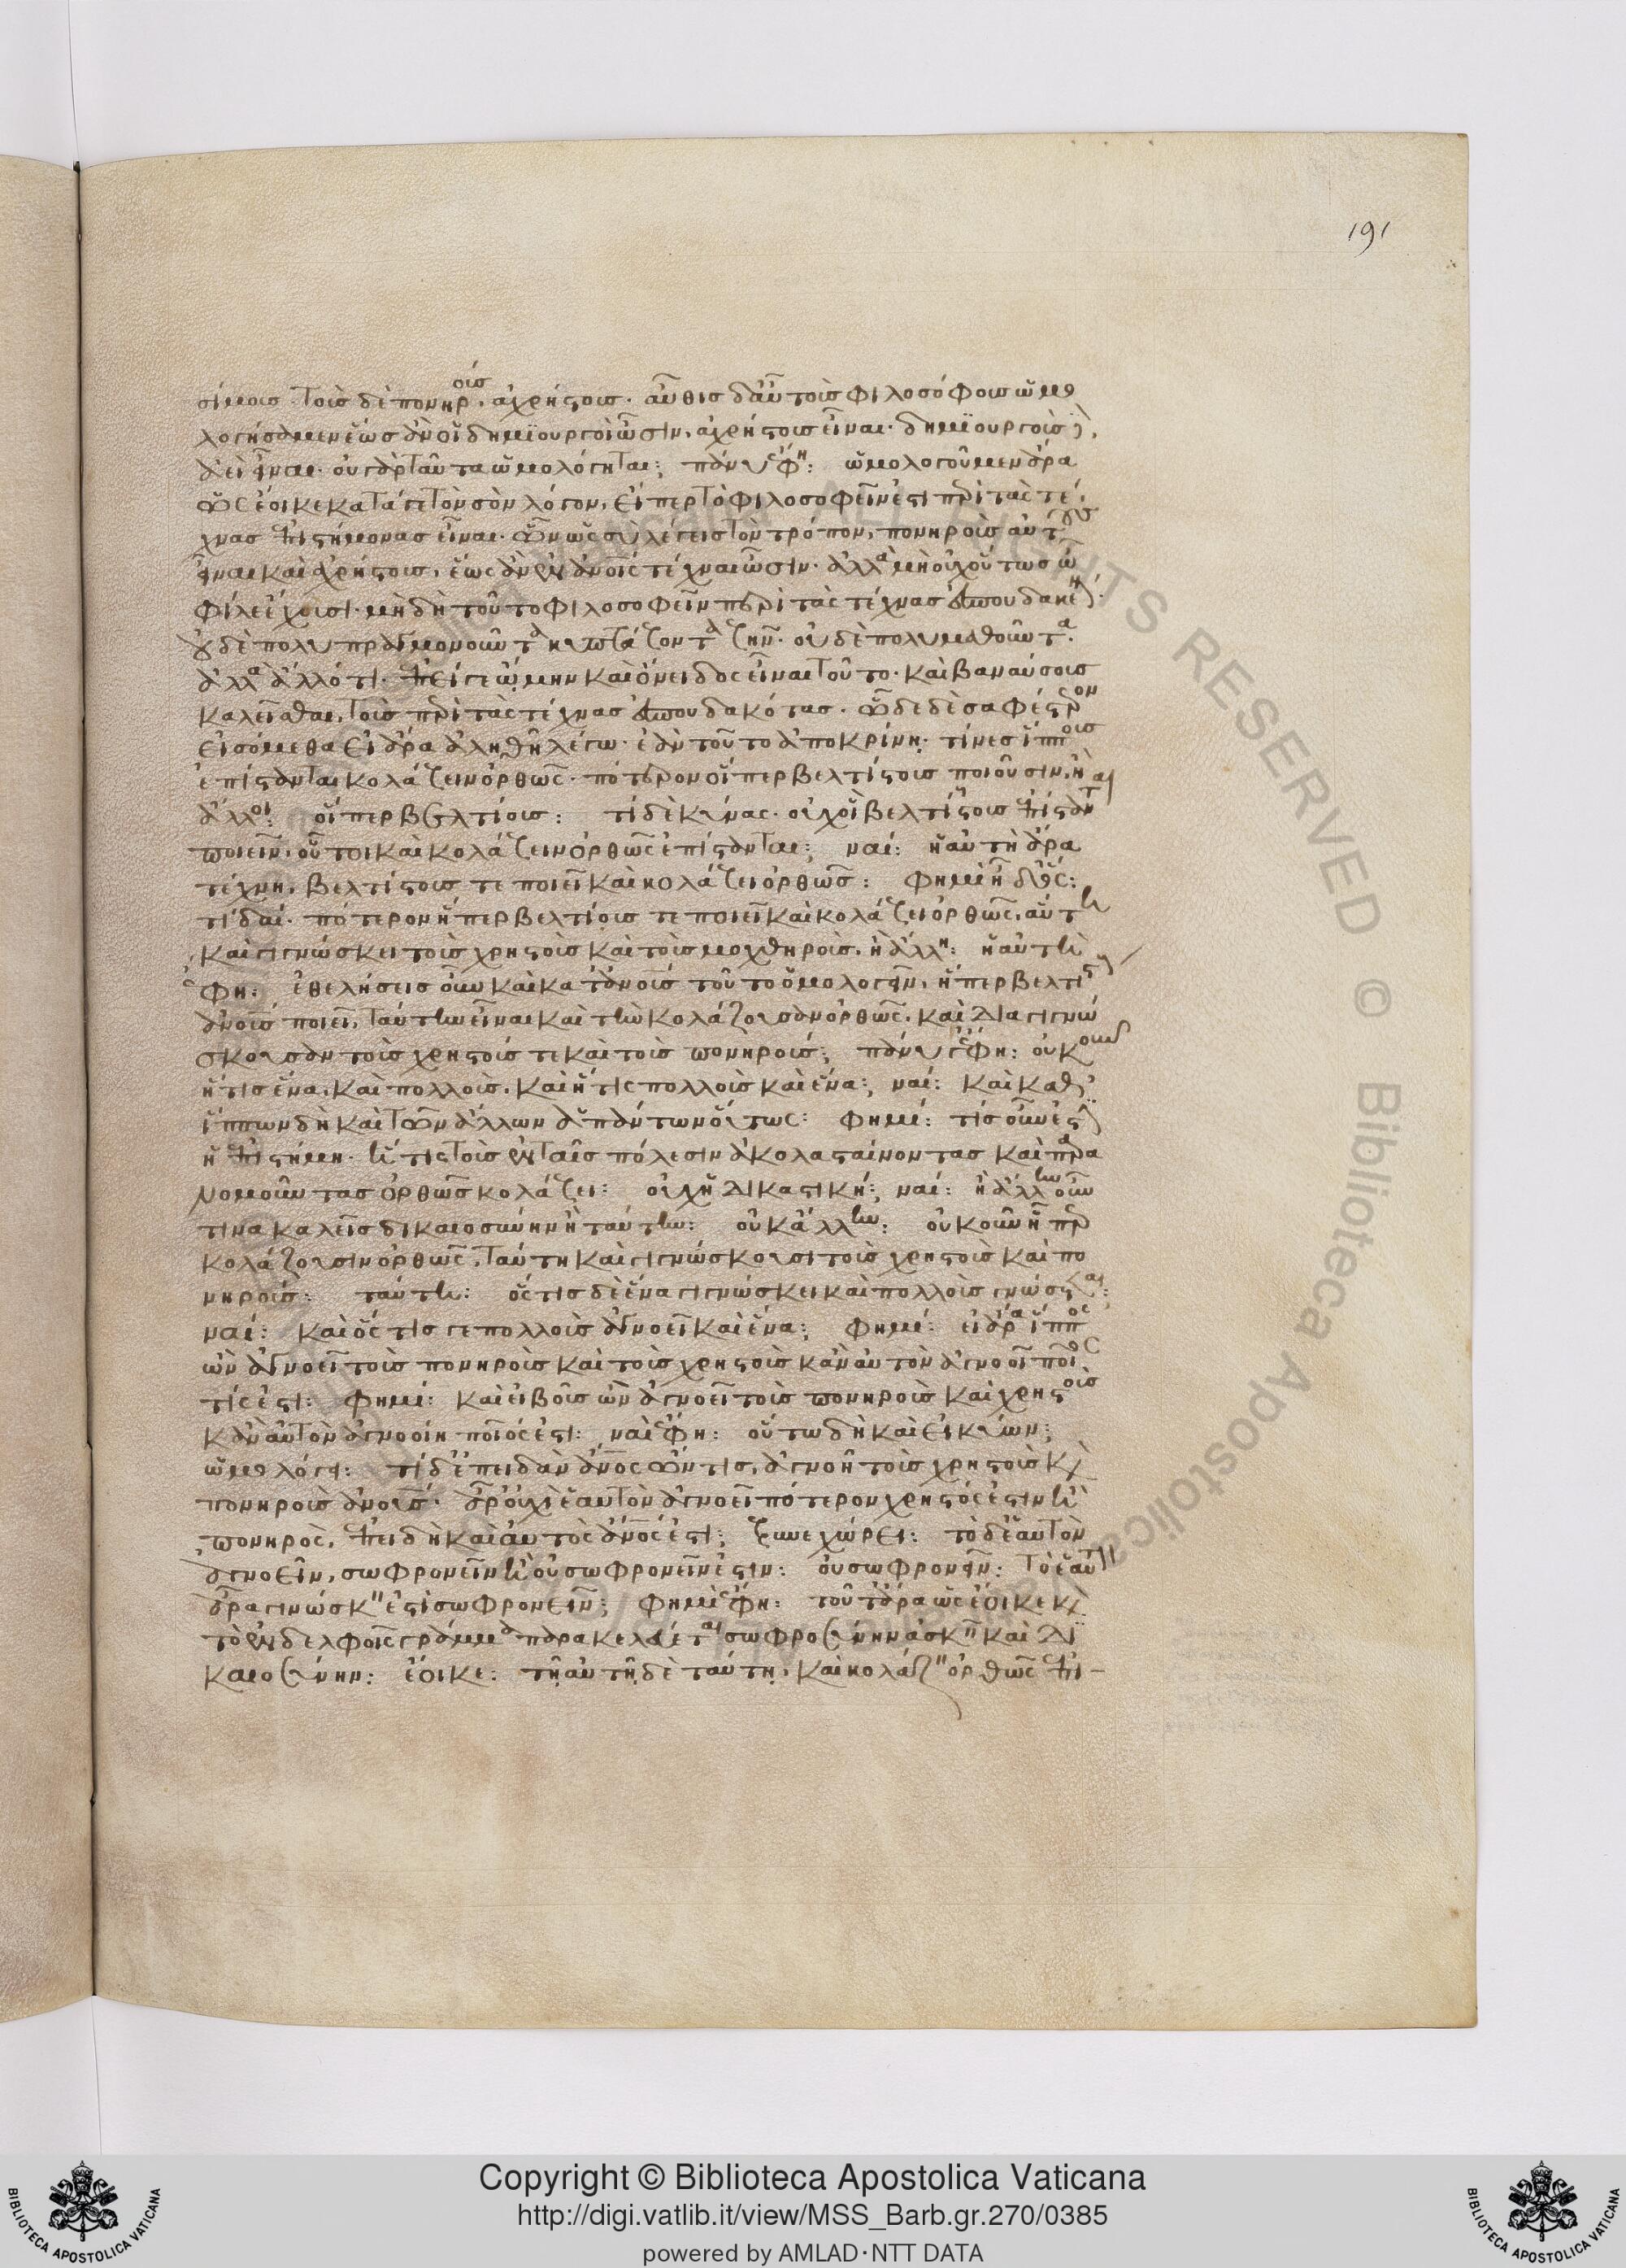 191
σίμους τοὺς δὲ πονηροὺς ἀχρήστους. αὖθις δ' αὖ τοὺς φιλοσόφους ὡμο
λογήσαμεν ἕως ἂν οἱ δημϊουργοὶ ὦσιν, ἀχρήστους εἶναι. δημϊουργοὺς δὲ
ἀεὶ εἶναι. οὐ γὰρ ταῦτα ὡμολόγηται; πάνυ γ' ἔφη: ὡμολογοῦμεν ἄρα
ὡς ἔοικε κατά γε τὸν σὸν λόγον, εἴπερ τὸ φιλοσοφεῖν ἐστὶ περὶ τὰς τέ
χνας ἐπιστήμονας εἶναι. ὃν ὡς σὺ λέγεις τὸν τρόπον, πονηροὺς αὐτοὺς
εἶναι καὶ ἀχρήστους, ἕως ἂν ἐν ἀνοις τέχναι ὦσιν. ἀλλὰ μὴ οὐχ οὕτως ὦ
φίλε ἔχουσι. μὴ δὴ τοῦτο φιλοσοφεῖν περὶ τὰς τέχνας ἐσπουδακέναι.
οὐδὲ πολυπραγμονοῦντα κυπτάζοντα ζῆν. οὐδὲ πολυμαθοῦντα.
ἀλλὰ ἄλλό τι. ἐπεί γε ᾤμην καὶ ὄνειδος εἶναι τοῦτο. καὶ βαναύσους
καλεῖσθαι, τοὺς περὶ τὰς τέχνας ἐσπουδακότας. ὧδε δὲ σαφέστερον
εἰσόμεθα εἰ ἄρα ἀληθῆ λέγω. ἐὰν τοῦτο ἀποκρίνῃ. τίνες ἵππους
ἐπίστανται κολάζειν ὀρθῶς. πότερον οἵπερ βελτίστους ποιοῦσιν, ἢ
ἄλλοι: οἵπερ βελτίους: τί δὲ κύνας. οὐχ οἳ βελτίστους ἐπίστανται
ποιεῖν, οὗτοι καὶ κολάζειν ὀρθῶς ἐπίστανται; ναί: ἡ αὐτὴ ἄρα
τέχνη, βελτίστους τε ποιεῖ καὶ κολάζει ὀρθῶς: φημὶ ἦ δ' ὅς:
τί δαί. πότερον ἥπερ βελτίους τε ποιεῖ καὶ κολάζει ὀρθῶς, αὕτη
καὶ γιγνώσκει τοὺς χρηστοὺς καὶ τοὺς μοχθηρούς, ἢ ἄλλη: ἡ αὐτὴ
ἔφη: ἐθελήσεις οὖν καὶ κατ' ἀνους τοῦτο ὁμολογεῖν, ἥπερ βελτίστους
ἀνους ποιεῖ, ταύτην εἶναι καὶ τὴν κολάζουσαν ὀρθῶς, καὶ διαγιγνώ
σκουσαν τοὺς χρηστούς τε καὶ τοὺς πονηρούς; πάνυ γ' ἔφη: οὐκοῦν
ἥτις ἕνα, καὶ πολλούς, καὶ ἥτις πολλοὺς καὶ ἕνα; ναί: καὶ καθ'
ἵππων δὴ καὶ τῶν ἄλλων ἁπάντων οὕτως: φημί: τίς οὖν ἐστὶν
ἡ ἐπιστήμη. ἥτις τοὺς ἐν ταῖς πόλεσιν ἀκολασταίνοντας καὶ παρα
νομοῦντας ὀρθῶς κολάζει: οὐχ ἡ δικαστική; ναί: ἢ ἄλλην οὖν
τινα καλεῖς δικαιοσύνην ἢ ταύτην: οὐκ ἄλλην: οὐκοῦν ᾗπερ
κολάζουσιν ὀρθῶς, ταύτῃ καὶ γιγνώσκουσι τοὺς χρηστοὺς καὶ πο
νηρούς: ταύτῃ: ὅστις δὲ ἕνα γιγνώσκει καὶ πολλοὺς γνώσεται:
ναί: καὶ ὅστις γε πολλοὺς ἀγνοεῖ καὶ ἕνα; φημί: εἰ ἄρα ἵππος
ὢν ἀγνοεῖ τοὺς πονηροὺς καὶ τοὺς χρηστοὺς κἂν αὑτὸν ἀγνοοῖ ποῖός
τίς ἐστι: φημί: καὶ εἰ βοῦς ὢν ἀγνοεῖ τοὺς πονηροὺς καὶ χρηστοὺς
κἂν αὑτὸν ἀγνοοίη ποῖός ἐστι: ναὶ ἔφη: οὕτω δὴ καὶ εἰ κύων;
ὡμολόγει: τί δ' ἐπειδὰν ἀνος ὤν τις, ἀγνοῇ τοὺς χρηστοὺς καὶ
πονηροὺς ἀνους. ἆρ' οὐχὶ ἑαυτὸν ἀγνοεῖ πότερον χρηστός ἐστιν ἢ
πονηρός, ἐπειδὴ καὶ αὐτὸς ἀνος ἐστι; ξυνεχώρει: τὸ δὲ ἑαυτὸν
ἀγνοεῖν, σωφρονεῖν ἢ οὐ σωφρονεῖν ἐστιν: οὐ σωφρονεῖν: τὸ ἑαυτὸν
ἄρα γιγνώσκειν ἐστὶ σωφρονεῖν; φημὶ ἔφη: τοῦτ' ἄρα ὡς ἔοικε καὶ
τὸ ἐν δελφοῖς γράμμα παρακελεύεται σωφροσύνην ἀσκεῖν καὶ δι
καιοσύνην: ἔοικε: τῇ αὐτῇ δὲ ταύτῃ, καὶ κολάζειν ὀρθῶς ἐπι-
Copyright © Biblioteca Apostolica Vaticana
http://digi.vatlib.it/view/MSS_Barb.gr.270/0385
powered by AMLAD·NTT DATA
BIBLIOTECA APOSTOLICA VATICANA
BIBLIOTECA APOSTOLICA VATICANA